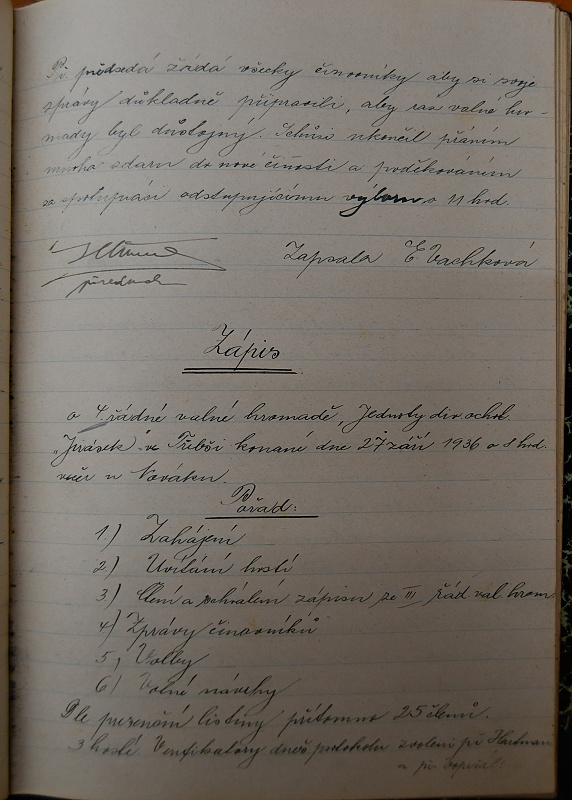 Př. předsedá žádá všecky činovníky aby si svoje
zprávy důkladně připravili, aby ráz valné hro-
mady byl důstojný. Schůzi ukončil přáním
mnoha zdaru do nové činosti a poděkováním
za spolupráci odstupujícímu výboru o 11 hod.
předseda
Zapsala E Vachková
Zápis
o 4. řádné valné hromadě, Jednoty div. ochot.
"Jirásek" ve Třebši konané dne 27 září 1936 o 8 hod.
večer u Nováků.
Pořad:
1.) Zahájení
2.) Uvítání hostí
3.) Čtení a schválení zápisu ze III. řád val hrom.
4.) Zprávy činovníků
5.) Volby
6.) Volné návrhy
Dle presenční listiny přítomno 25 členů.
3 hosté. Verifikátory dneš. protokolu zvoleni př. Hartman
a př.